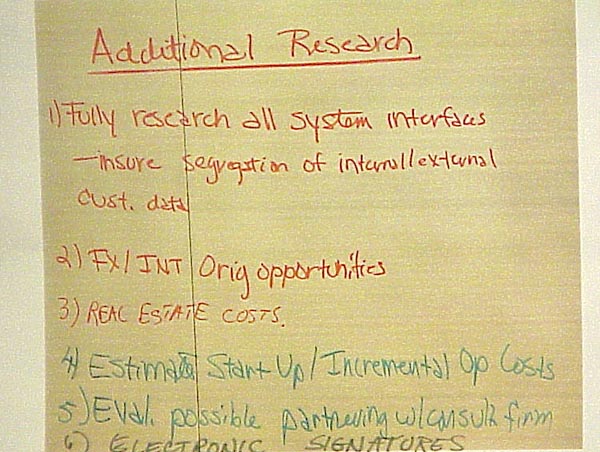 Additional Research
1) Fully research all system interfaces
—insure segregation of internal/external
cust. data
2) FX/INT Orig opportunities
3) REAL ESTATE COSTS.
4) Estimate Start Up/Incremental Op Costs
5) Eval. possible partnering w/consult firm
6) ELECTRONIC SIGNATURES